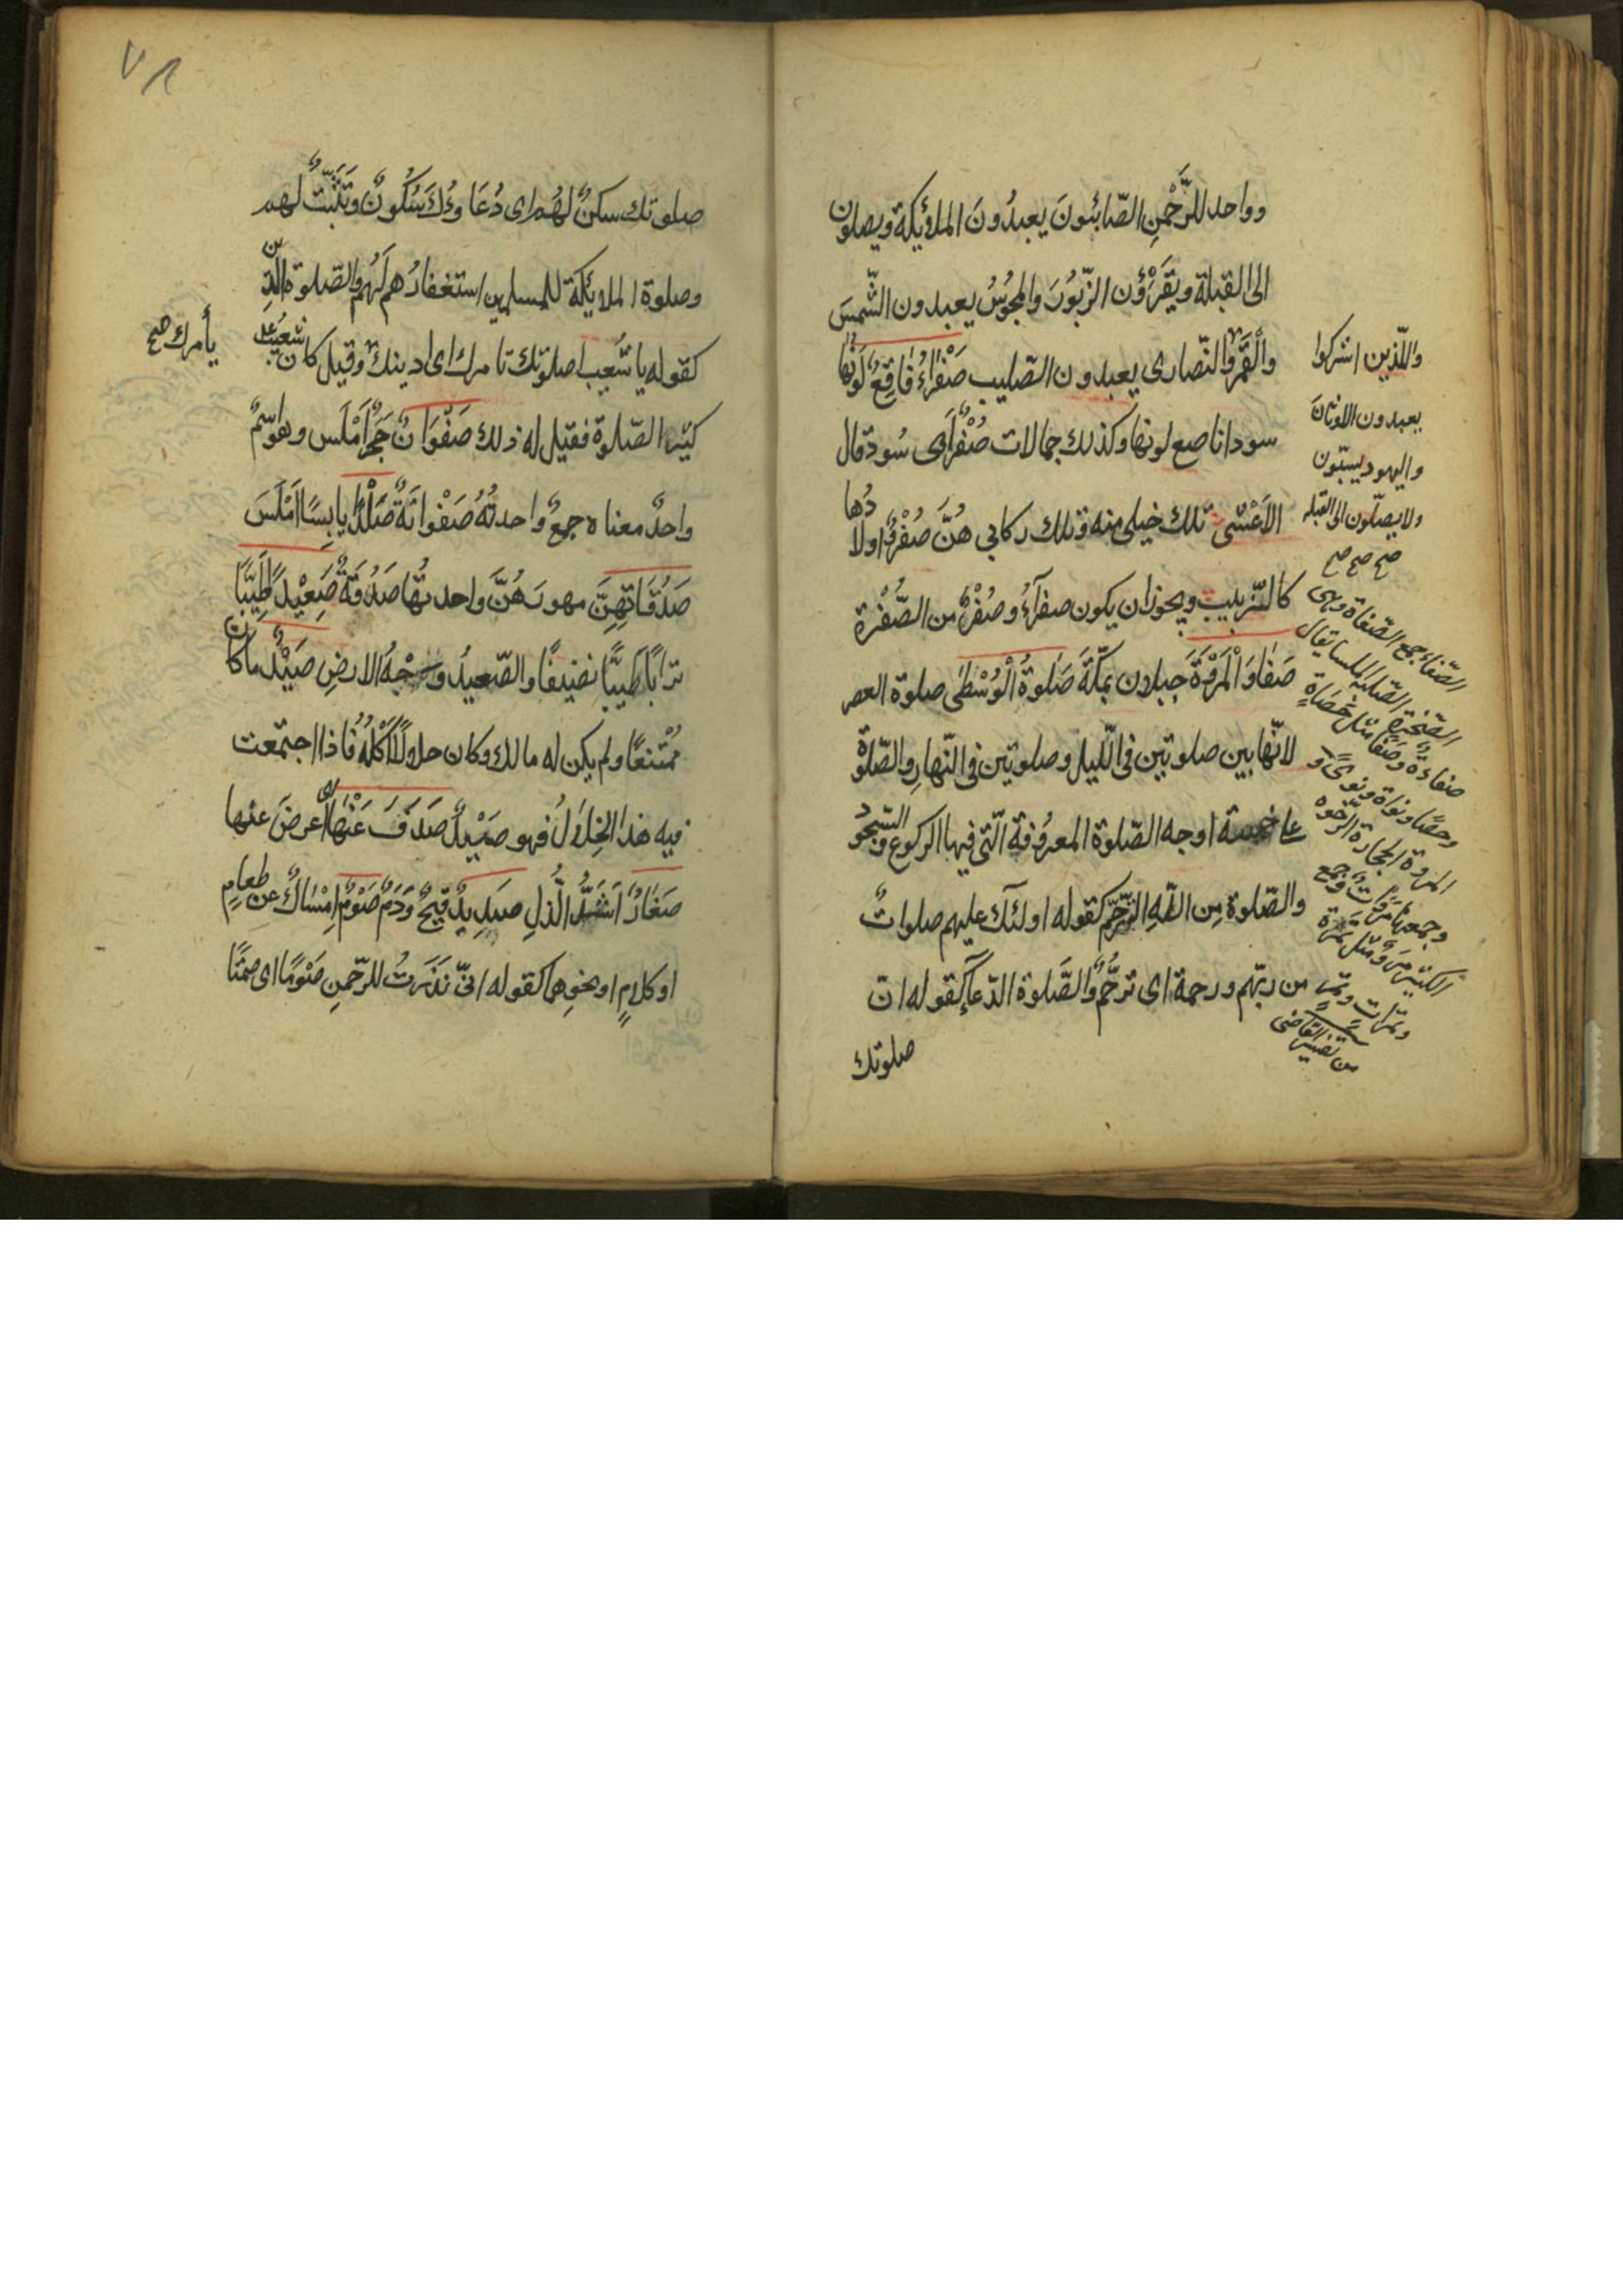 وواحد للرَّحْمٰنِ الصّابئونَ يعبدُونَ الملائِكةَ ويصلون
الى القبلة ويَقْرَؤُن الزّبُورَ والمجُوسُ يعبدون الشّمسَ
والْقَمَرَ والنّصارى يعبدون الصّليب صَفْرَاءُ فَاقِعٌ لَوْنُهَا
سودا ناصع لونها وكذلك جمالات صُفْرٌ اى سُود قال
الاَعْشى تلك خيلى منه وتلك ركابي هُنَّ صُفْرٌ اولادُها
كالزّبيب ويجوز ان يكون صفرآءُ وصُفْرٌ من الصُّفْرة
صَفَا وَالْمَرْوَةَ جبلان بمَكّةَ صَلوةُ الْوُسْطٰى صلوة العصر
لانّها بين صلوتين فى اللّيل وصلوتين فى النّهارِ والصّلوةُ
على خمسة اوجه الصّلوة المعرُوفة الّتى فيها الركوع والسّجود
والصّلوة مِن اللّٰهِ التَّرحّم كقوله اولئك عليهم صلواتٌ
من ربّهم ورحمة اى ترحُّمٌ والصَّلوة الدّعآ كقوله انّ
صلوتك
والّذين اشركوا
يعبدون الاوثانَ
واليهود يسبّون
ولا يصلّون الى القبله
صح صح صح
الصّفاء جمع الصّفاة وهى
الصّخرة الصّلبة الملسا يقال
صفاءة وصَفًا مثل حَصَاةٍ
وحصًا ونواة ونوىً و
المروة الحجارة الرّخوه
وجمعها مَرَوَاتٌ وجمع
الكثير مَروٌ مثل تمرة
وتمرات وتمرٍ
من تفسير القاضى
٧٨
صلوتك سكنٌ لهُم اى دُعَاؤُكَ سُكُونٌ وتَثَبُّتٌ لهم
وصلوة الملائِكَة للمسلمين استغفارُهم لَهُم والصّلوة الدّين
كقوله يا شُعَيب اصلوتك تامرك اى ادينك وقيل كان شعَيْب
كثير الصّلوة فقيل له ذلك صَفْوَانٌ حَجَرٌ اَمْلَس وهو اسْمٌ
واحدٌ معناه جمعٌ واحدتُهُ صَفْوانَةٌ صَلْدًا يابِسًا اَمْلَسَ
صَدُقَاتِهِنَّ مهورَهُنَّ واحدتُها صَدُقَةٌ صَعِيْدًا طَيِّبًا
تراَبًا طَيِّبًا نضيفًا والصّعيدُ وَجْهُ الارضِ صَيْدٌ ما كان
مُمْتَنعًا ولم يكن له مالك وكان حلالًا اَكْلُهُ فَاذا اجتمَعت
فيه هٰذا الخِلَالُ فهو صَيْدٌ صَدَفَ عَنْهَا اى اعرضَ عنها
صَغَارٌ اَشَدُّ الذُّلِ صَدِيدٌ قَيْحٌ وَدَمٌ صَوْمٌ اِمْسَاكٌ عن طعامٍ
او كلامٍ او نحوِهما كقوله انّى نَذَرتُ للرّحمنِ صَوْمًا اى صمتًا
يأمرك صح